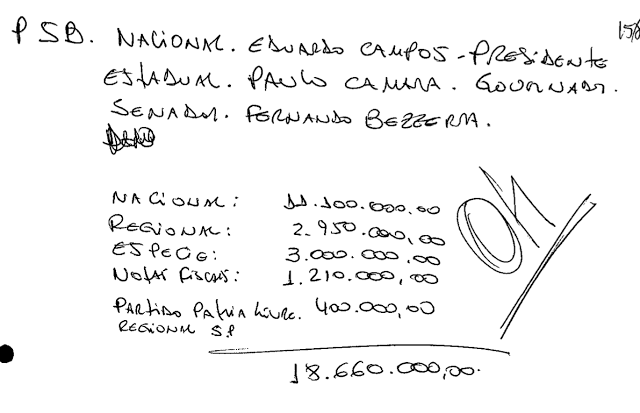 PSB. NACIONAL. EDUARDO CAMPOS - PRESIDENTE
ESTADUAL. PAULO CAMARA. GOVERNADOR.
SENADOR. FERNANDO BEZZERRA.
NACIONAL: 11.100.000,00
REGIONAL: 2.950.000,00
ESPECIE: 3.000.000,00
NOTAS FISCAIS: 1.210.000,00
PARTIDO PATRIA LIVRE. 400.000,00
REGIONAL SP
18.660.000,00.
OK